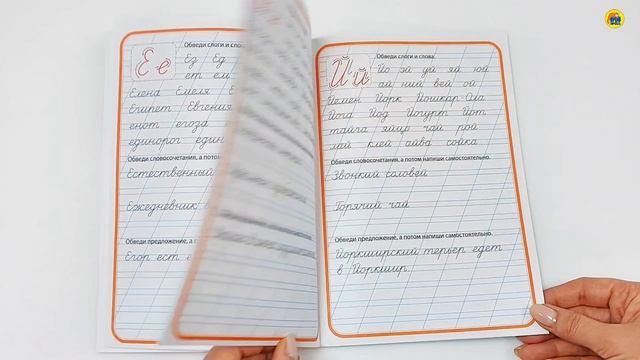 Е е
Обведи слоги и сло
Ез Ед
ет ем
Елена Емеля
Египет Евгения
енот егоза
единорог един
Обведи словосочетания, а пота
Естественный
Ежедневник
Обведи предложение, а
Егор ест
Й й
Обведи слоги и слова.
Йо эй уй яй юй
ай ний вей ой
Йемен Йорк Йошкар-Ола
Йога Йод Йогурт Йорт
тайга яйцо чай рой
лай клей айва сойка
Обведи словосочетания, а потом напиши самостоятельно.
Звонкий соловей
Горячий чай
Обведи предложение, а потом напиши самостоятельно.
Йоркширский терьер едет
в Йоркшир.